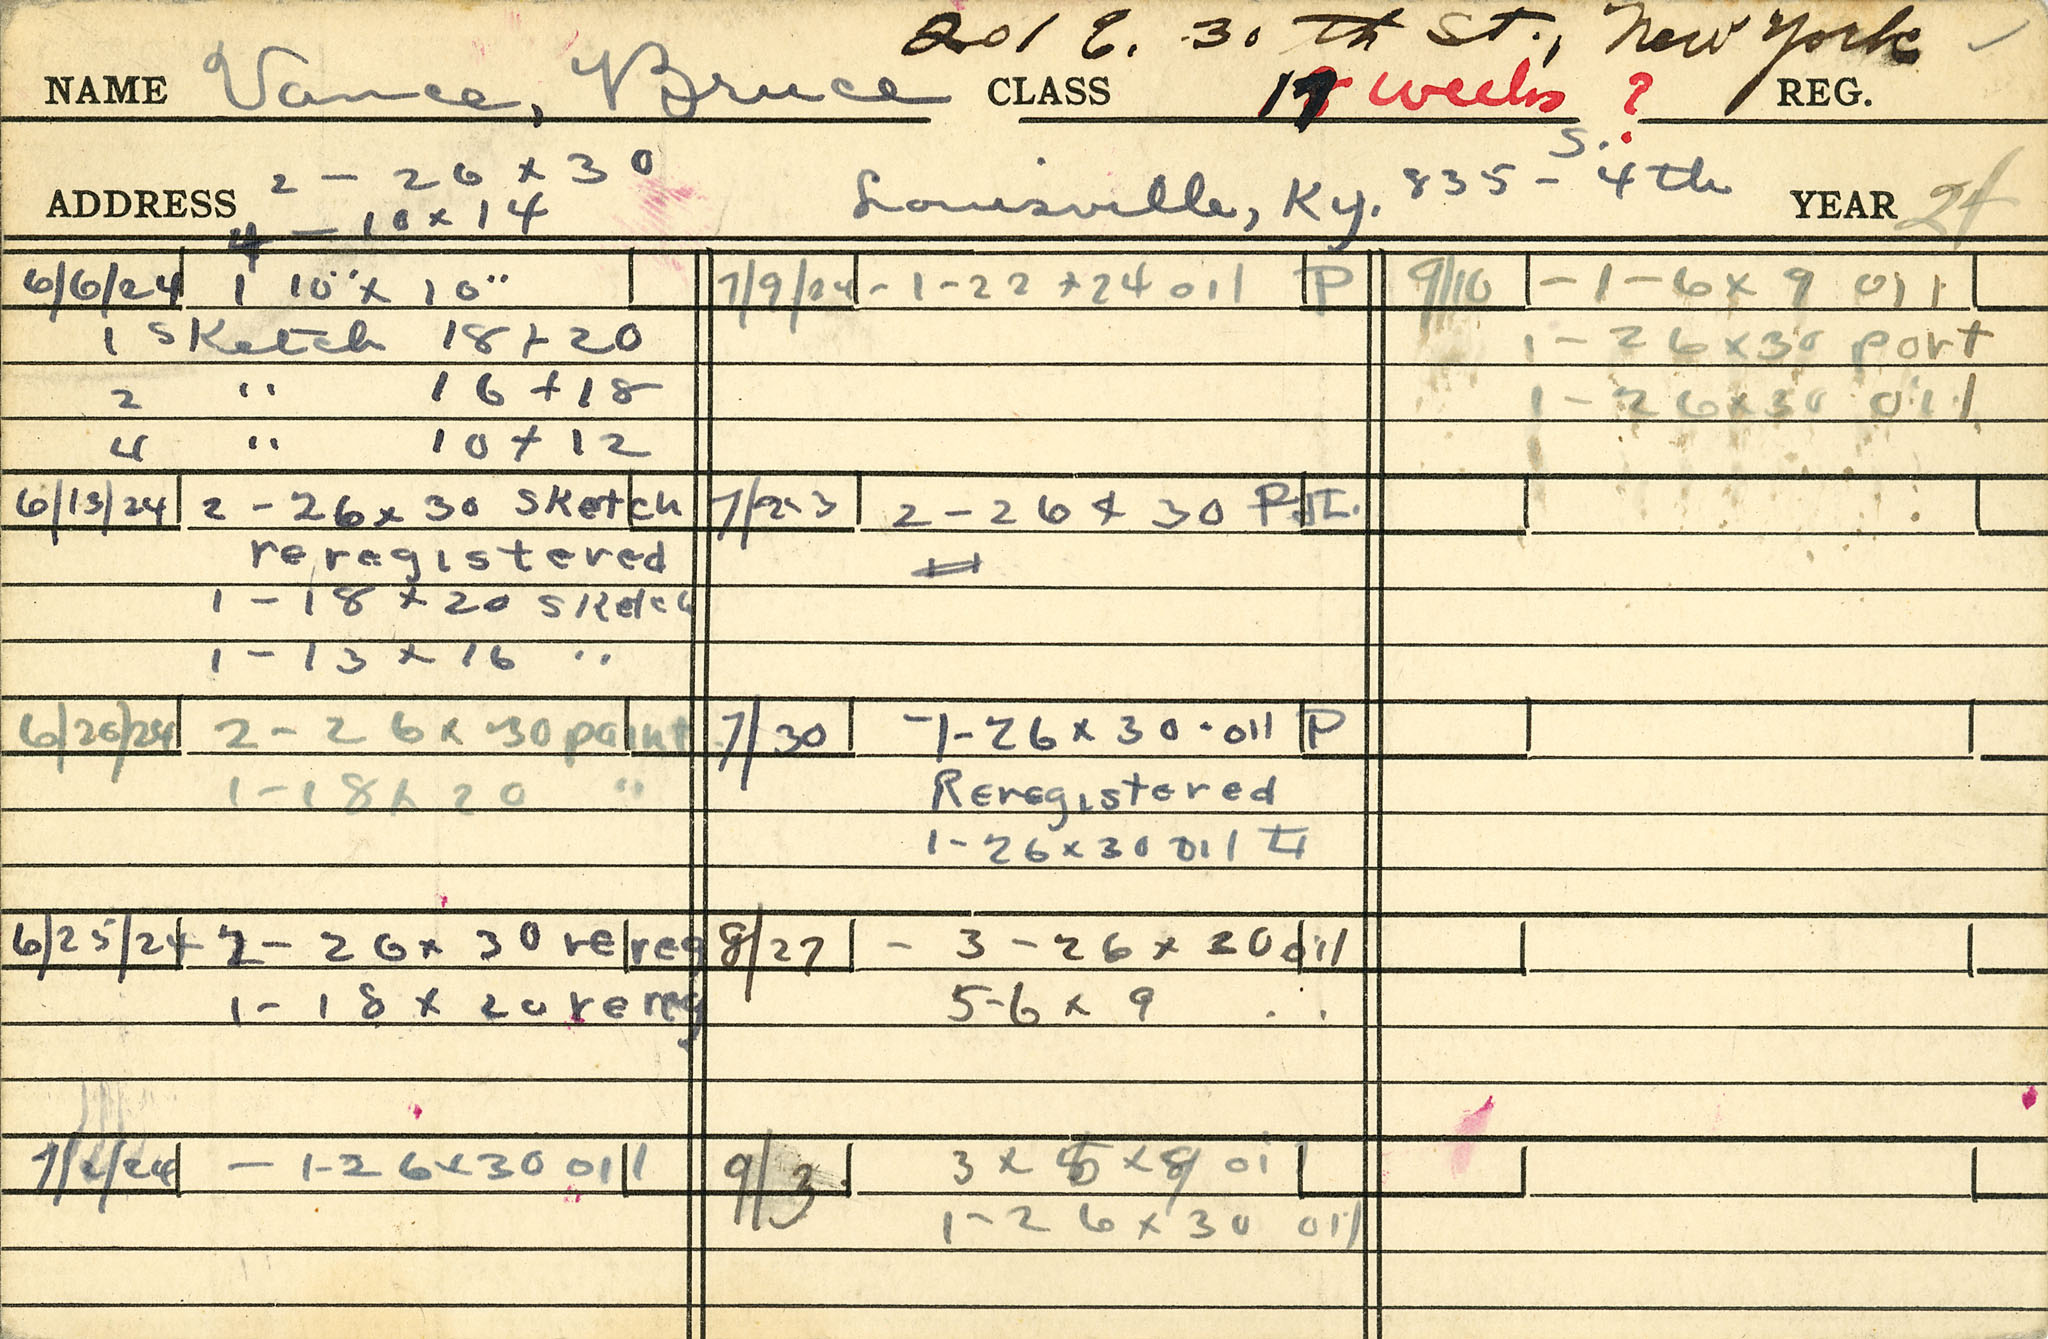 201 E. 30 th St., New York
NAME Vance, Bruce CLASS 17 weeks ? REG.
2 - 26 x 30
ADDRESS 4 - 10 x 14 Louisville, Ky. 835 - S. 4th YEAR 24
6/6/24 1 10" x 10"
1 Sketch 18 x 20
2 " 16 x 18
4 " 10 x 12
6/13/24 2 - 26 x 30 Sketch
reregistered
1 - 18 x 20 Sketch
1 - 13 x 16 "
6/20/24 2 - 26 x 30 paint
1 - 18 x 20 "
6/25/24 2 - 26 x 30 rereg
1 - 18 x 20 rereg
7/2/24 - 1-26 x 30 oil
7/9/24 - 1 - 22 x 24 oil P
7/23 2 - 26 x 30 Pst.
7/30 - 1 - 26 x 30 - oil P
Reregistered
1 - 26 x 30 oil
8/27 - 3 - 26 x 30 oil
5-6 x 9 "
9/3 3 x 8 oil
1 - 26 x 30 oil
9/10 - 1 - 6 x 9 oil
1 - 26 x 30 port
1 - 26 x 30 oil